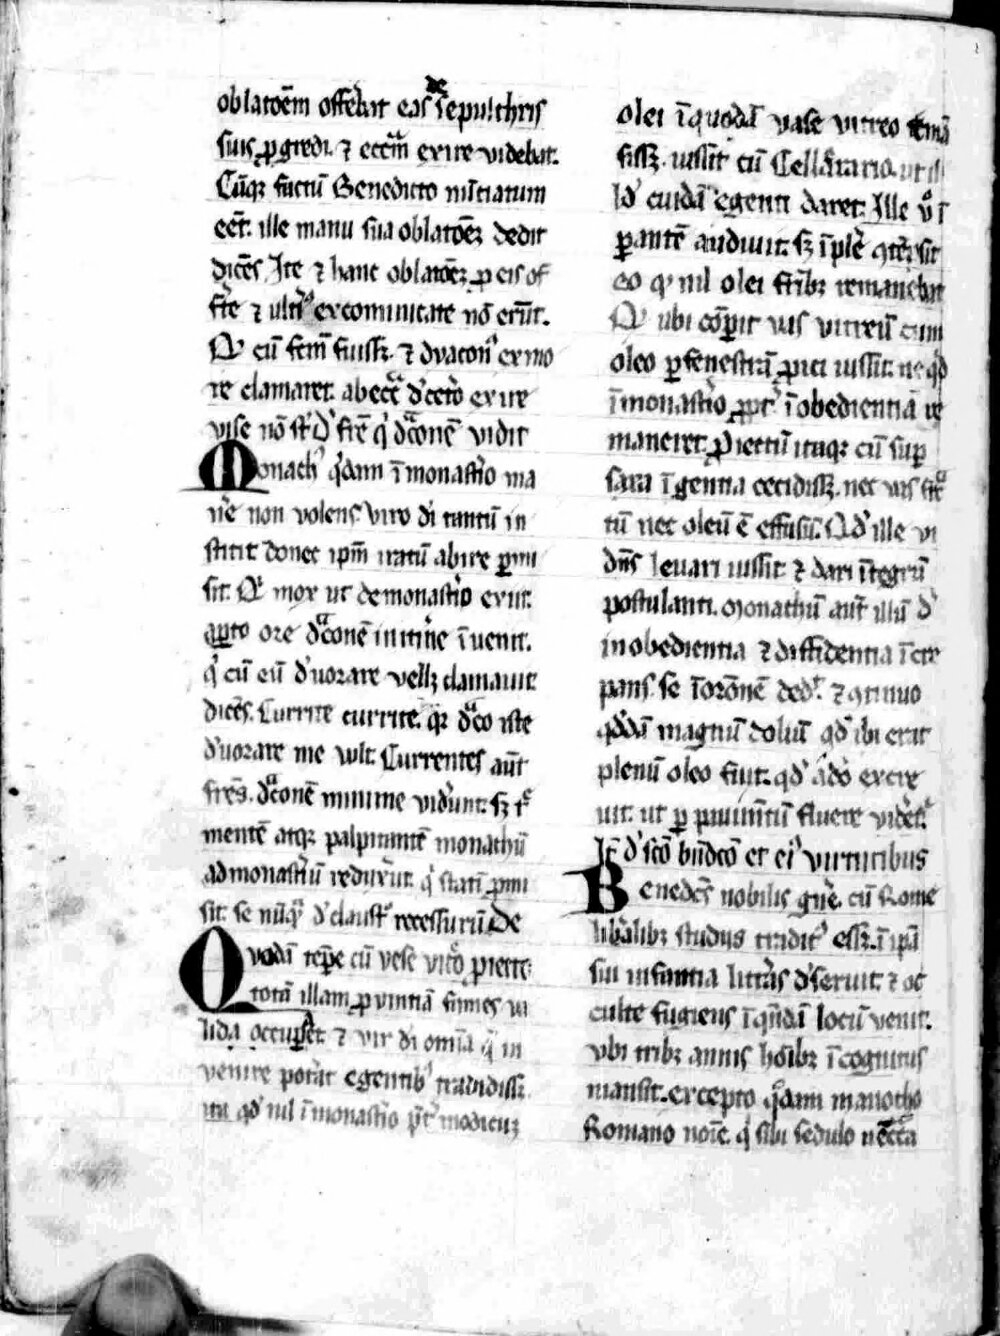 oblatōem offerret eas de sepulchris
suis ꝓgredi. ⁊ ecclīam exire videbat.
Cūqꝫ factū Benedicto nūtiatum
eēt. ille manu sua oblatōeꝫ dedit
dicēs. Ite ⁊ hanc oblatōeꝫ ꝓ eis of
fˀte ⁊ ultiꝰ excomunicate nō erūt.
Qᵈ cū fcm̄ fuissꝫ. ⁊ dyaconꝰ ex mo
re clamaret. ab eccˡīa d'cetˀo exire
vise nō st̄ D' frē qͥ dᵃconē vidit
Monachꝰ qͥdam ī monastˀio ma
nˀe non volens. viro di tantū in
stitit donec ipm̄ iratū abire ꝑmi
sit. Qͥ mox ut de monastˀio exiit.
apˀto ore dᵃconē in itinˀe īvenit.
qͥ cū eū d'vorare vellꝫ clamavit
dicēs. Currite currite. qꝫ dᵃco iste
d'vorare me vult. Currentes aūt
frēs. dᵃconē minime vidˀunt. sꝫ tˀ
mentē atqꝫ palpitantē monachū
ad monastˀiū reduxˀūt. qͥ statī ꝓmi
sit. se nūqᵃ d' claustˀ recessurū De
Quodā tēpe cū vese vitˀo ꝓiecto
totā illam ꝓvintiā fames va
lida occupasset ⁊ vir di omīa qͥ in
venire potˀat egentibꝰ tradidissꝫ
ita qᵈ nil ī monastˀio pͭ modicuꝫ
olei ī quodā vase vitreo remā
sissꝫ. iussit cū Cellarario. ut il
ld' cuidā egenti daret. Ille vͦ ī
ꝑantē audivit. sꝫ īplē ꝯtēpsit
eo qᵈ nil olei frībꝫ remanebat
Qᵈ ubi cōpˀit vas vitreū cum
oleo ꝑ fenestrā ꝓici iussit. ne qͥd
ī monastˀio ꝓptˀ īobedientiā re
maneret. ꝓiectū itaqꝫ cū sup
saxa īgentia cecidissꝫ. nec vas frac
tū nec oleū ē effusū. Qᵈ ille vi
dēs levari iussit ⁊ dari ītegrū
postulanti. monachū aūt illū d'
inobedientia ⁊ diffidentia īcre
pans. se ī orōnē ded'. ⁊ ꝯtinuo
qᵈdā magnū doliū qᵈ ibi erat
plenū oleo fuit. qᵈ ādō excre
vit. ut ꝑ pavimētū fluere vidˀetˀ
It̄ d' scō bn̄dcō et eiꝰ virtutibus
Benedcˀs nobilis gnˀe. cū Rome
libˀalibꝫ studiis traditꝰ essꝫ. ī ipā
sui infantia litˀas d'seruit. ⁊ oc
culte fugiens ī qͥndā locū venit.
ubi tribꝫ annis hoībꝫ īcognitus
mansit. excepto qͦdam manocho
Romano noīe. qͥ sibi sedulo nēccᵃ